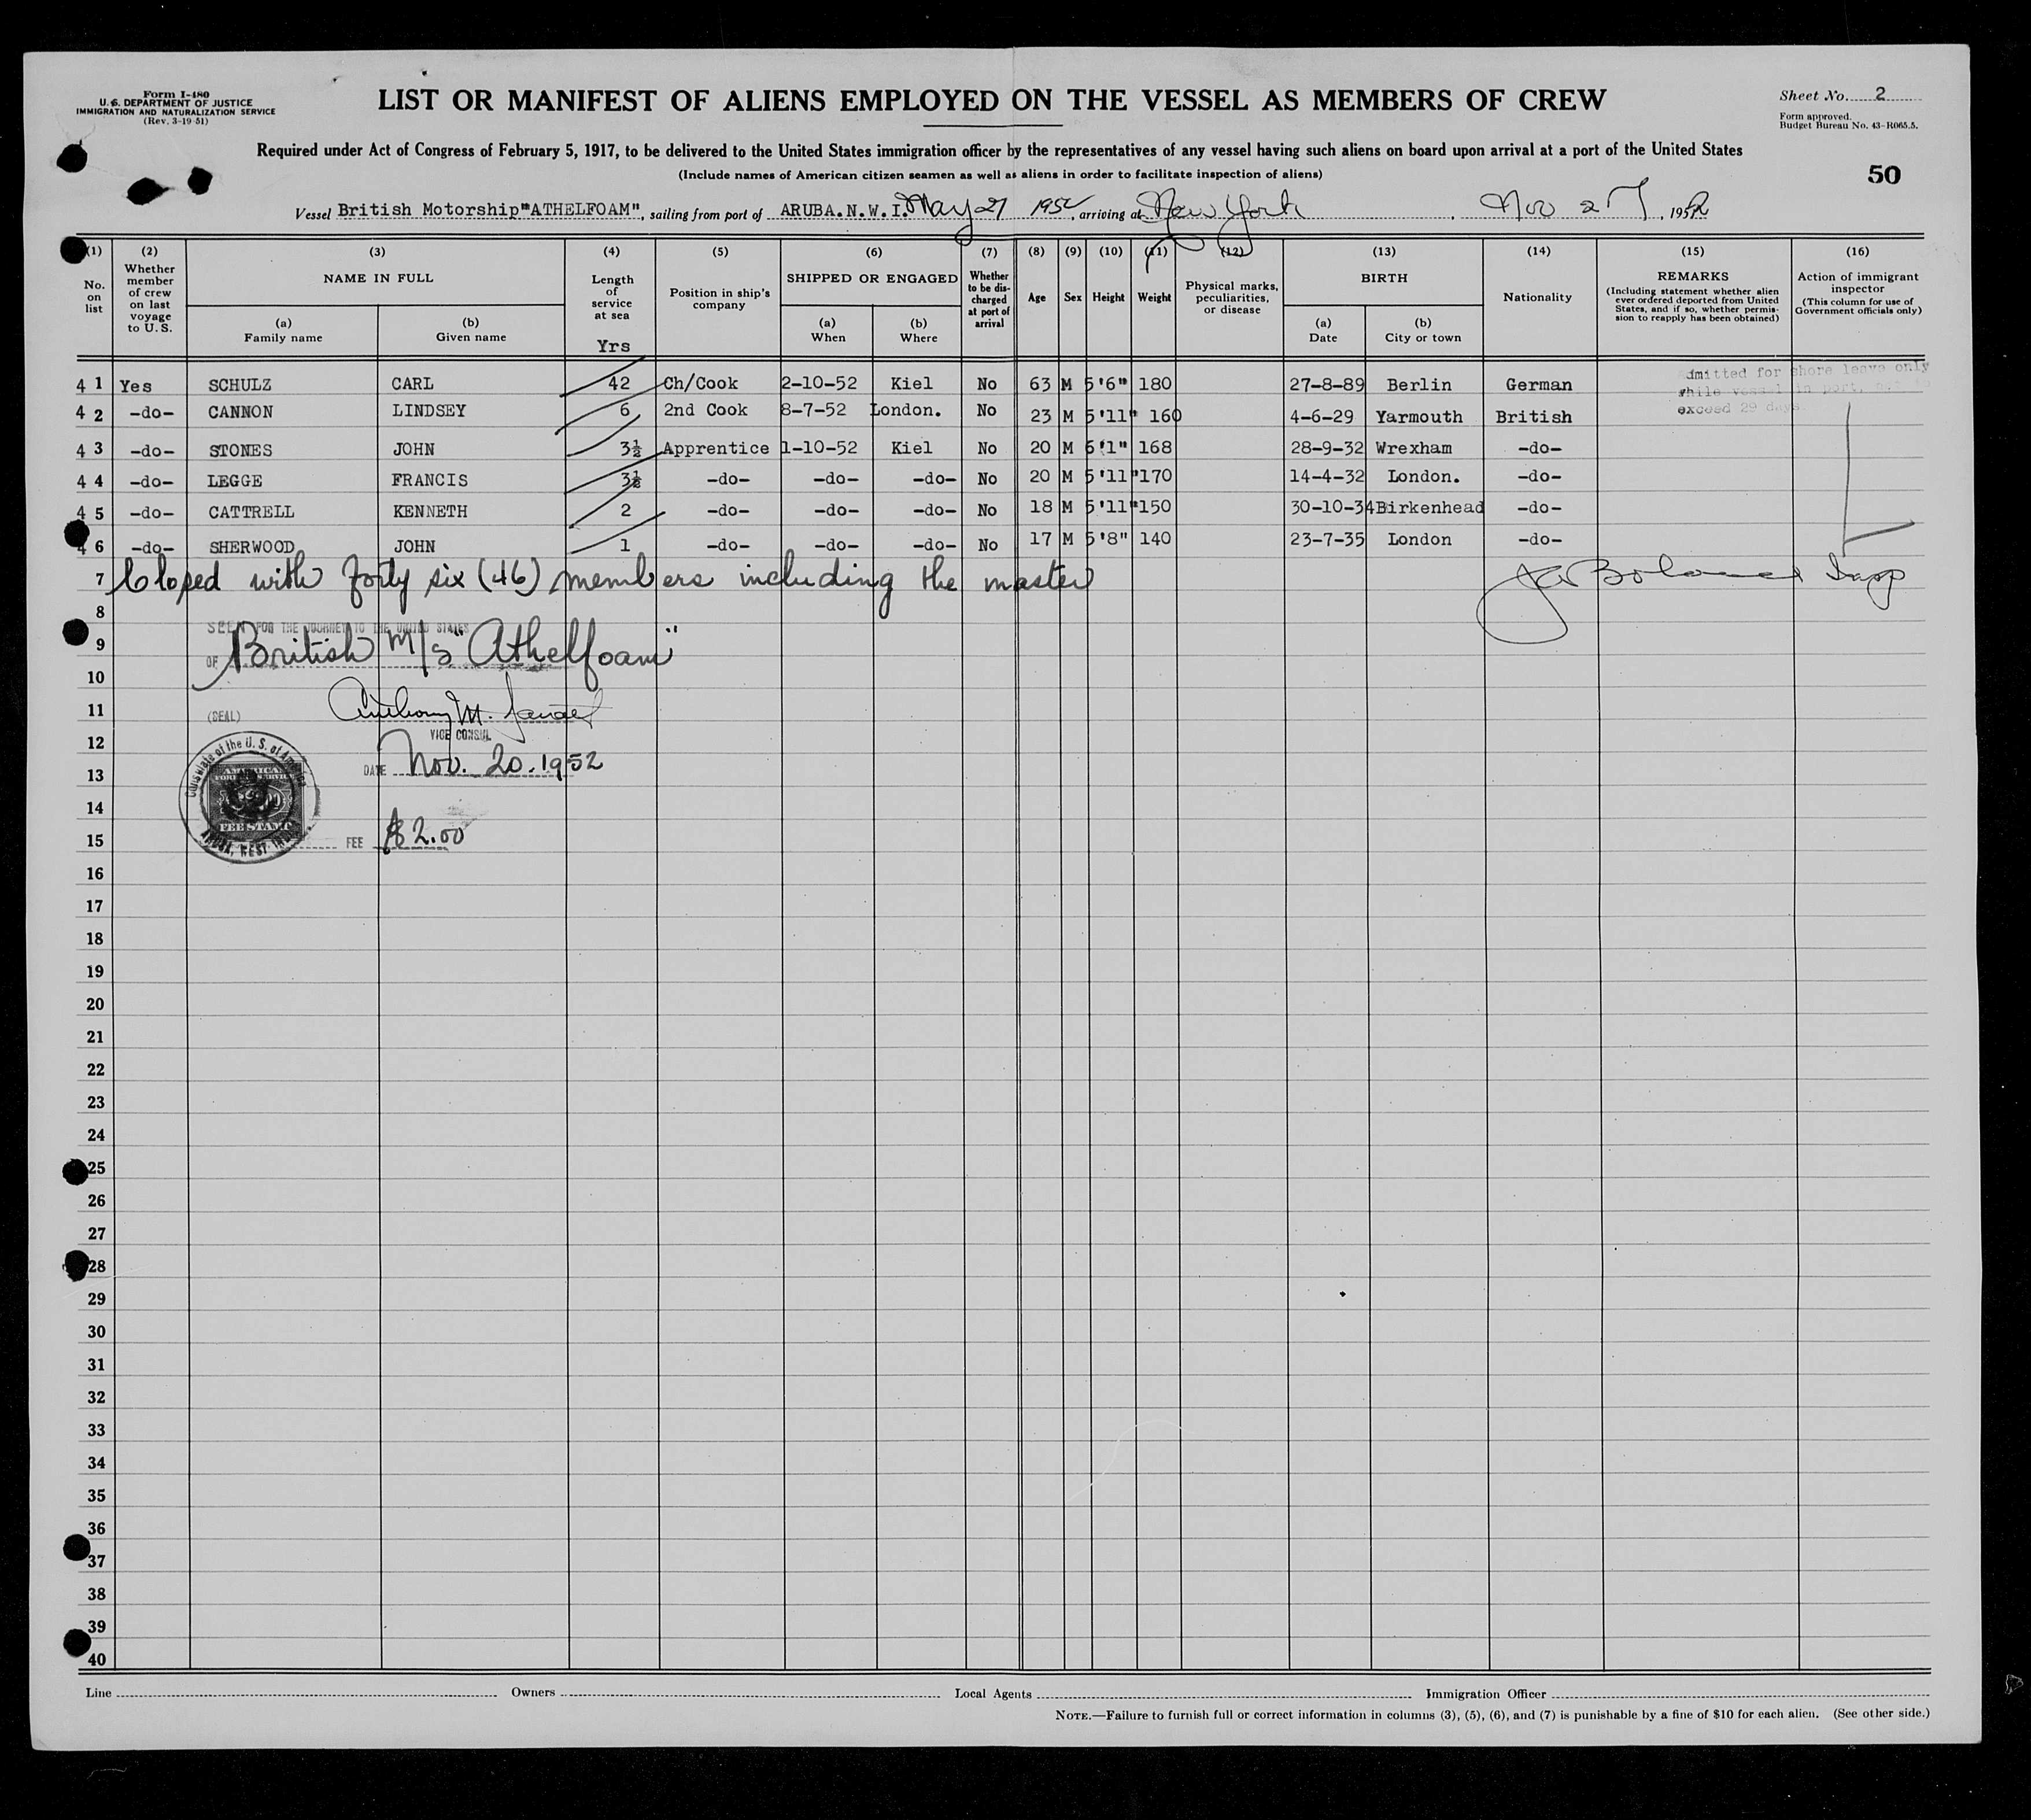 Form I-480
U. S. DEPARTMENT OF JUSTICE
IMMIGRATION AND NATURALIZATION SERVICE
(Rev. 3-19-51)
LIST OR MANIFEST OF ALIENS EMPLOYED ON THE VESSEL AS MEMBERS OF CREW
Sheet No. 2
Form approved.
Budget Bureau No. 43-R065.5.
Required under Act of Congress of February 5, 1917, to be delivered to the United States immigration officer by the representatives of any vessel having such aliens on board upon arrival at a port of the United States
(Include names of American citizen seamen as well as aliens in order to facilitate inspection of aliens)
50
Vessel British Motorship "ATHELFOAM", sailing from port of ARUBA. N. W. I. May 27 1952, arriving at New York, Nov 27, 1952
(1) No. on list
(2) Whether member of crew on last voyage to U. S.
(3) NAME IN FULL (a) Family name (b) Given name
(4) Length of service at sea Yrs
(5) Position in ship's company
(6) SHIPPED OR ENGAGED (a) When (b) Where
(7) Whether to be discharged at port of arrival
(8) Age
(9) Sex
(10) Height
(11) Weight
(12) Physical marks, peculiarities, or disease
(13) BIRTH (a) Date (b) City or town
(14) Nationality
(15) REMARKS (Including statement whether alien ever ordered deported from United States, and if so, whether permission to reapply has been obtained)
(16) Action of immigrant inspector (This column for use of Government officials only)
4 1 Yes SCHULZ CARL 42 Ch/Cook 2-10-52 Kiel No 63 M 5'6" 180 27-8-89 Berlin German
4 2 -do- CANNON LINDSEY 6 2nd Cook 8-7-52 London. No 23 M 5'11" 160 4-6-29 Yarmouth British
4 3 -do- STONES JOHN 3½ Apprentice 1-10-52 Kiel No 20 M 6'1" 168 28-9-32 Wrexham -do-
4 4 -do- LEGGE FRANCIS 3½ -do- -do- -do- No 20 M 5'11" 170 14-4-32 London. -do-
4 5 -do- CATTRELL KENNETH 2 -do- -do- -do- No 18 M 5'11" 150 30-10-34 Birkenhead -do-
4 6 -do- SHERWOOD JOHN 1 -do- -do- -do- No 17 M 5'8" 140 23-7-35 London -do-
dmitted for shore leave only
while vessel in port, not to
exceed 29 days
7 Closed with forty six (46) members including the master
8
SEEN FOR THE JOURNEY TO THE UNITED STATES
9
OF British M/S "Athelfoam"
10
11
(SEAL) Anthony M.
VICE CONSUL
12
DATE Nov. 20. 1952
13
Consulate of the U. S. of America
AMERICAN
FOREIGN SERVICE
FEE STAMP
ARUBA, WEST INDIES
14
15
FEE $2.00
16
17
18
19
20
21
22
23
24
25
26
27
28
29
30
31
32
33
34
35
36
37
38
39
40
Line Owners Local Agents Immigration Officer
NOTE.—Failure to furnish full or correct information in columns (3), (5), (6), and (7) is punishable by a fine of $10 for each alien. (See other side.)